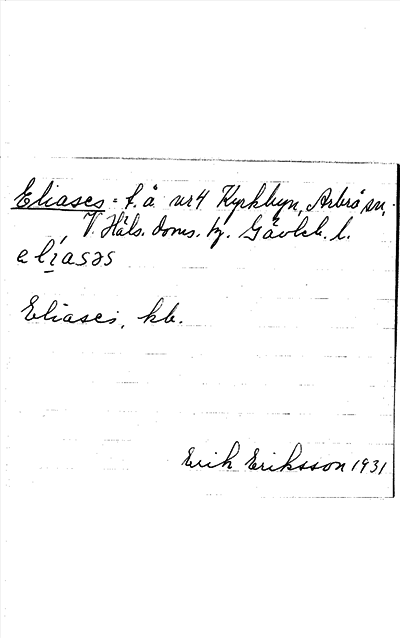 Eliases - f. å nr 4 Kyrkbyn, Arbrå sn,
V. Häls. doms. hj. Gävleb. l.
elíasəs
Eliases, kb.
Erik Eriksson 1931